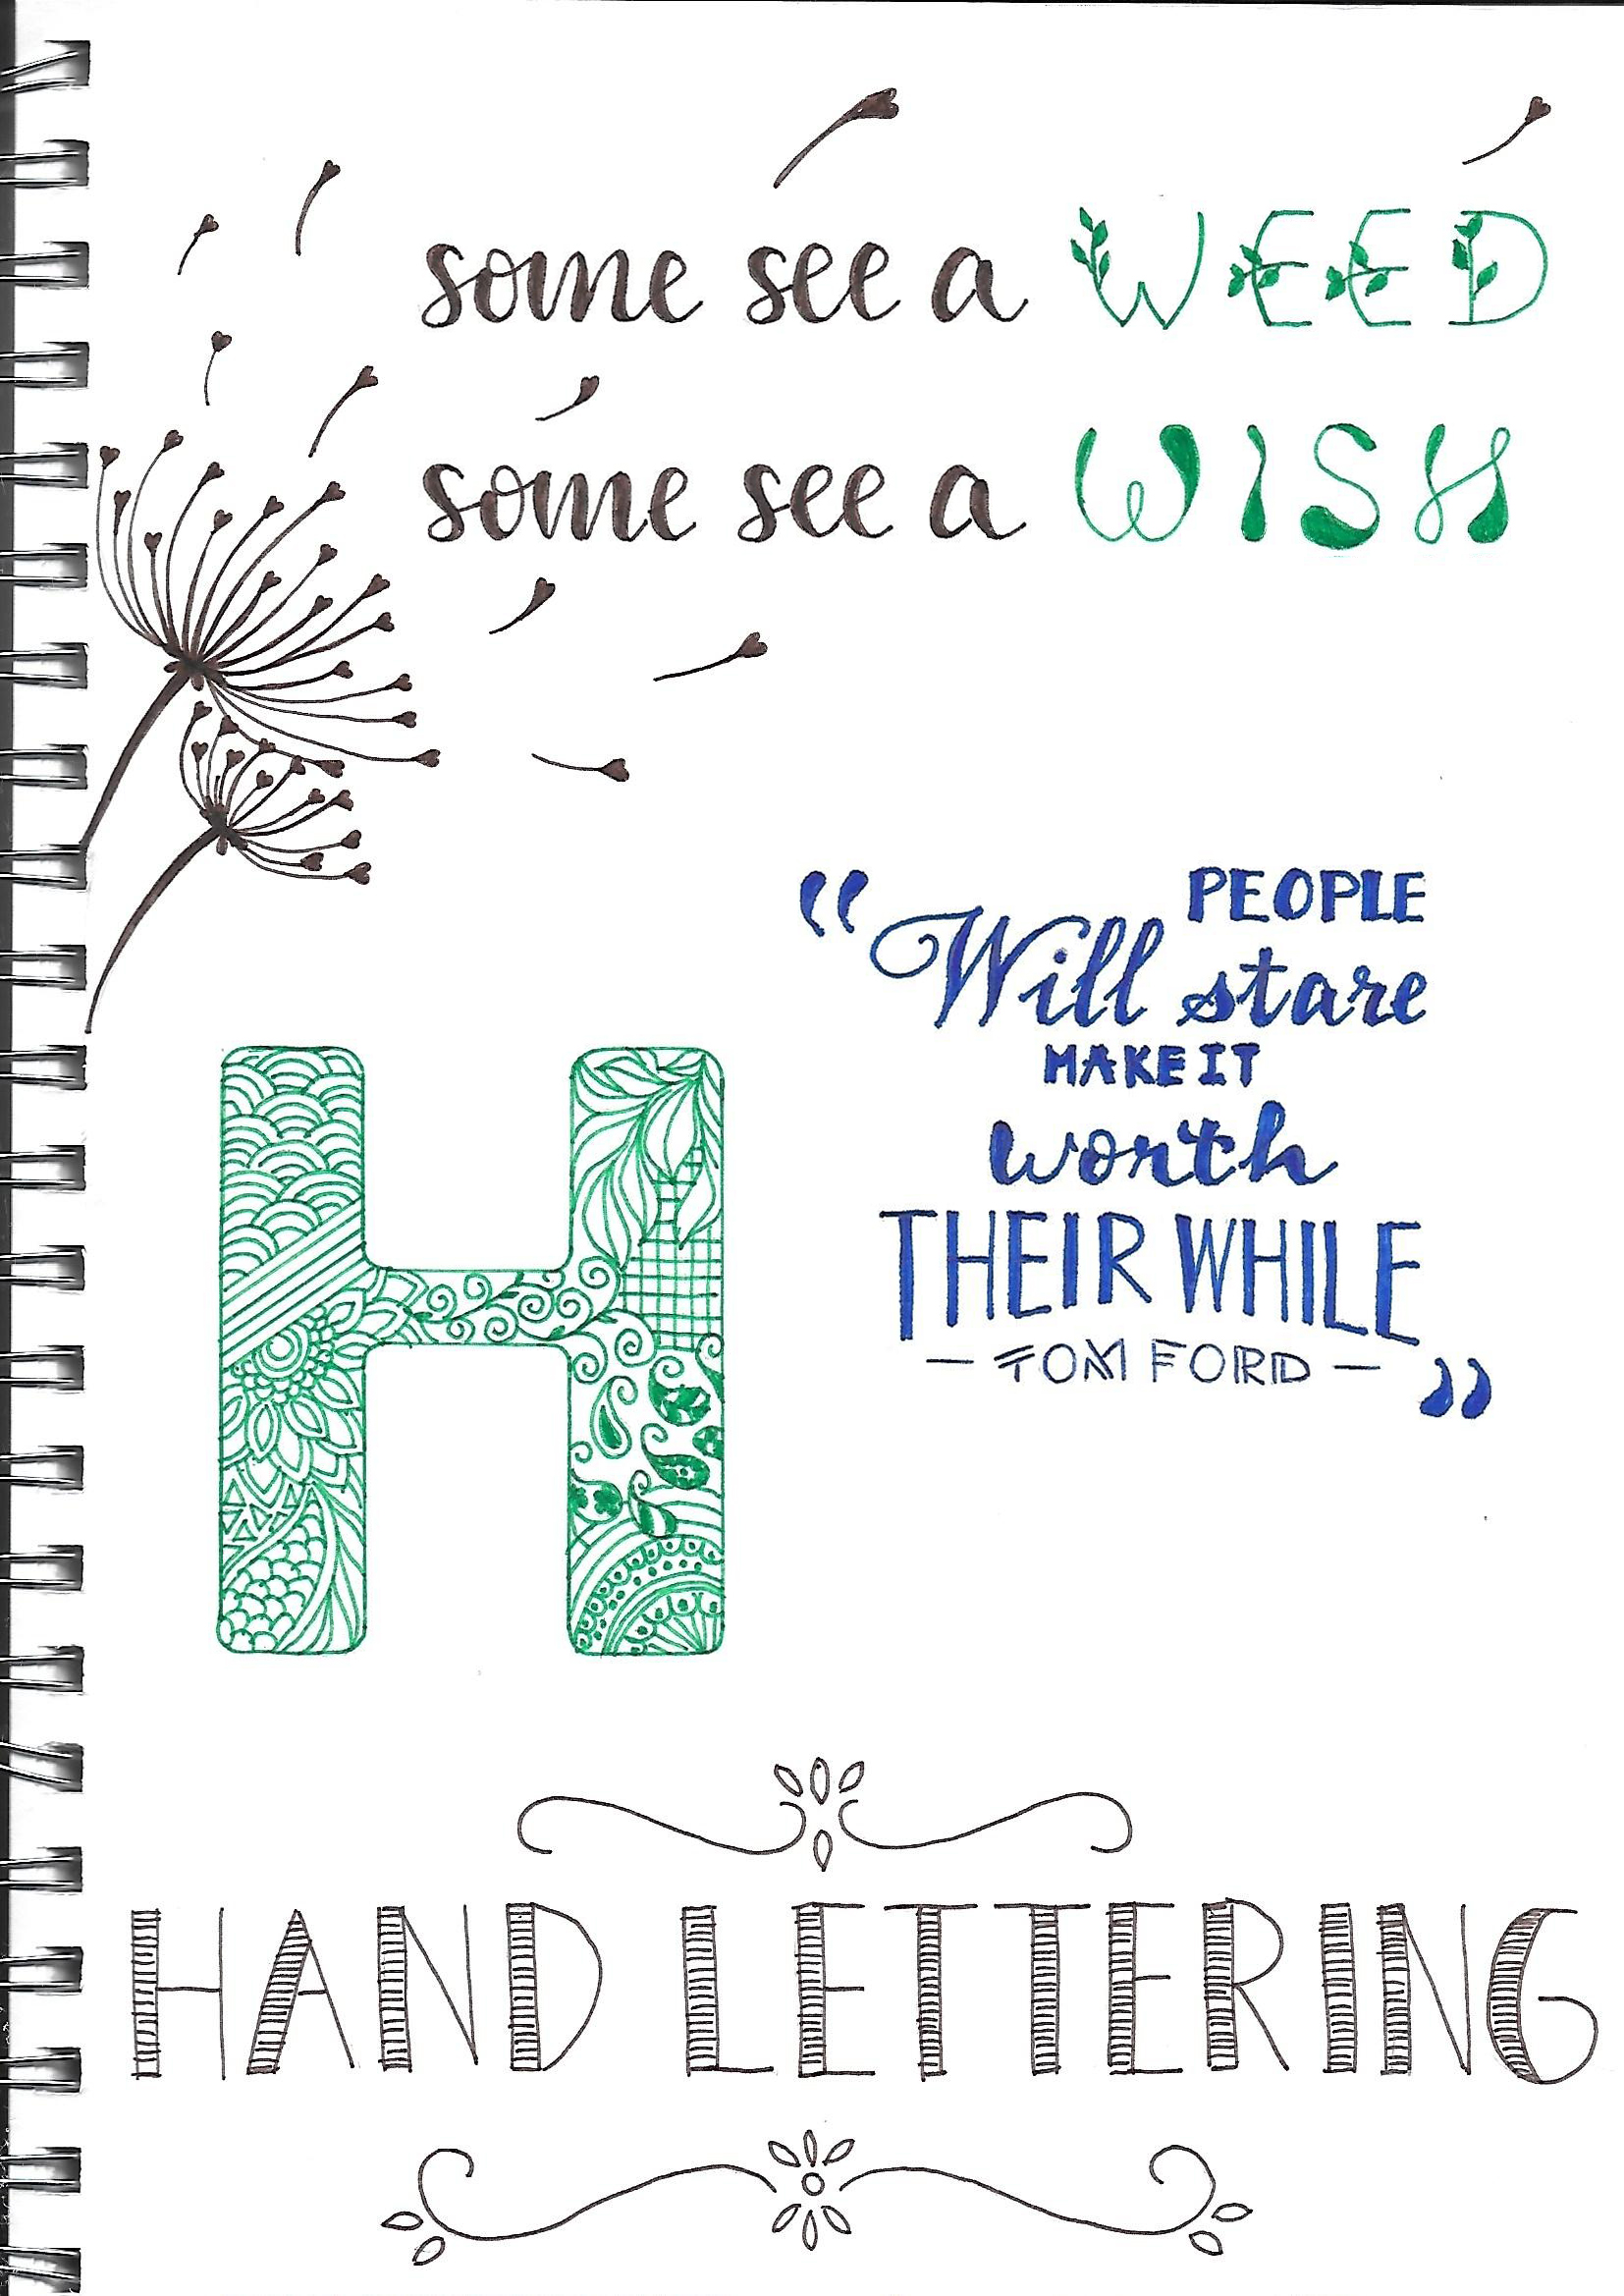 some see a WEED
some see a WISH
“ PEOPLE
Will stare
MAKE IT
worth
THEIR WHILE
- TOM FORD - ”
H
HAND LETTERING